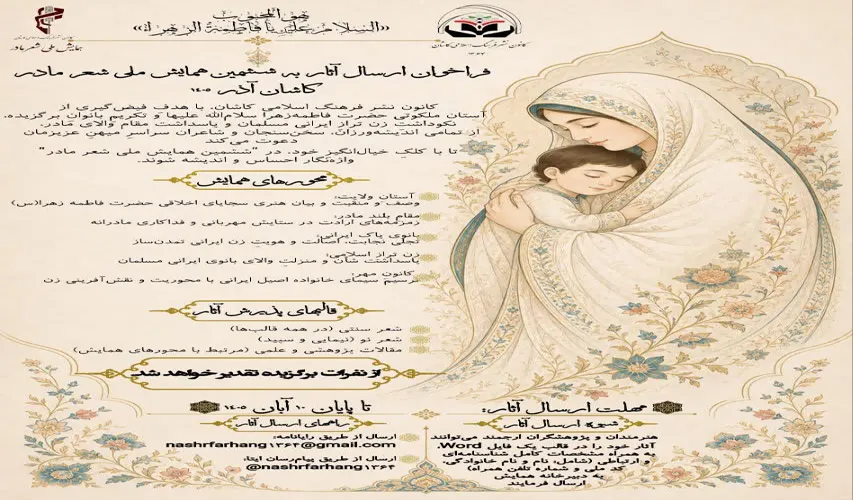 هوالمحبوب
«السلام علیک یا فاطمة الزهرا»
همایش ملی شعر مادر
کانون نشر فرهنگ اسلامی کاشان
۱۳۶۴
فراخوان ارسال آثار به ششمین همایش ملی شعر مادر
کاشان آذر ۱۴۰۵
کانون نشر فرهنگ اسلامی کاشان، با هدف فیض‌گیری از
آستان ملکوتی حضرت فاطمه‌زهرا سلام‌الله علیها و تکریم بانوان برگزیده،
نکوداشت زن تراز ایرانی مسلمان و پاسداشت مقام والای مادر،
از تمامی اندیشه‌ورزان، سخن‌سنجان و شاعران سراسر میهن عزیزمان
دعوت می‌کند
تا با کلکِ خیال‌انگیز خود، در "ششمین همایش ملی شعر مادر"
واژه‌نگار احساس و اندیشه شوند.
محورهای همایش
آستان ولایت:
وصف و منقبت و بیان هنری سجایای اخلاقی حضرت فاطمه زهرا(س)
مقام بلند مادر:
زمزمه‌های ارادت در ستایش مهربانی و فداکاری مادرانه
بانوی پاک ایرانی:
تجلی نجابت، اصالت و هویتِ زن ایرانی تمدن‌ساز
زن تراز اسلامی:
پاسداشت شأن و منزلتِ والای بانوی ایرانی مسلمان
کانون مهر:
ترسیم سیمای خانواده اصیل ایرانی با محوریت و نقش‌آفرینی زن
قالبهای پذیرش آثار
شعر سنتی (در همه قالب‌ها)
شعر نو (نیمایی و سپید)
مقالات پژوهشی و علمی (مرتبط با محورهای همایش)
از نفرات برگزیده تقدیر خواهد شد.
مهلت ارسال آثار:
تا پایان ۱۰ آبان ۱۴۰۵
شیوه ارسال آثار
هنرمندان و پژوهشگران ارجمند می‌توانند
آثار خود را در قالب یک فایل Word،
به همراه مشخصات کامل شناسنامه‌ای
و ارتباطی (شامل: نام و نام خانوادگی،
کد ملی و شماره تلفن همراه)
به دبیرخانه همایش
ارسال فرمایند
راههای ارسال آثار
ارسال از طریق رایانامه:
nashrfarhang۱۳۶۴@gmail.com
ارسال از طریق پیام‌رسان ایتا:
@nashrfarhang۱۳۶۴